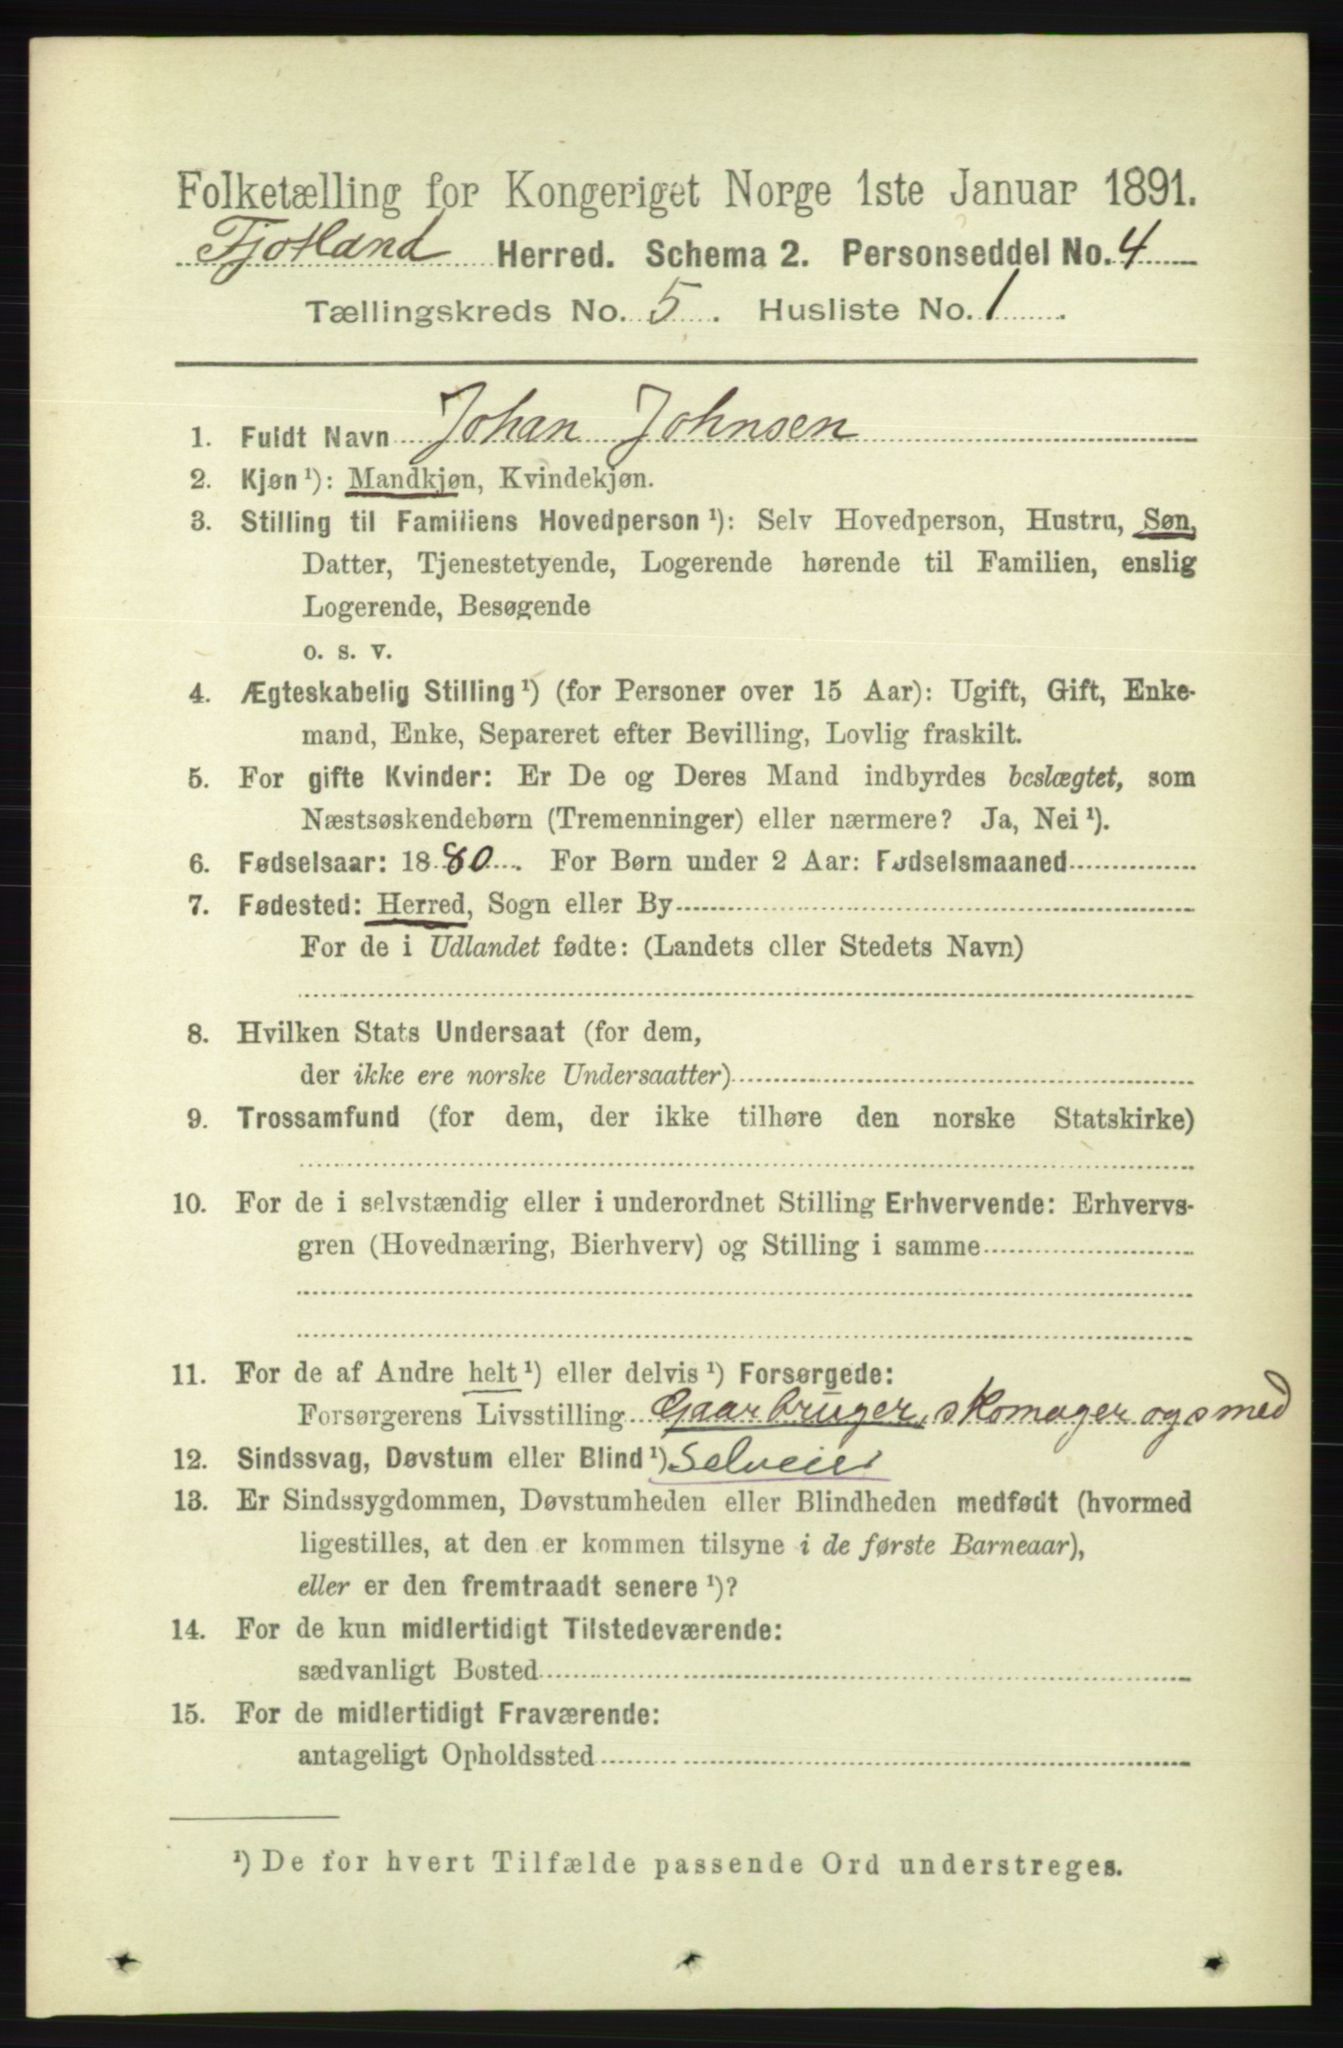 Folketælling for Kongeriget Norge 1ste Januar 1891.
Fjotland Herred. Schema 2. Personseddel No. 4
Tællingskreds No. 5. Husliste No. 1.
1. Fuldt Navn Johan Johnsen
2. Kjøn ¹): Mandkjøn, Kvindekjøn.
3. Stilling til Familiens Hovedperson ¹): Selv Hovedperson, Hustru, Søn,
Datter, Tjenestetyende, Logerende hørende til Familien, enslig
Logerende, Besøgende
o. s. v.
4. Ægteskabelig Stilling ¹) (for Personer over 15 Aar): Ugift, Gift, Enke-
mand, Enke, Separeret efter Bevilling, Lovlig fraskilt.
5. For gifte Kvinder: Er De og Deres Mand indbyrdes beslægtet, som
Næstsøskendebørn (Tremenninger) eller nærmere? Ja, Nei ¹).
6. Fødselsaar: 1880. For Børn under 2 Aar: Fødselsmaaned
7. Fødested: Herred, Sogn eller By
For de i Udlandet fødte: (Landets eller Stedets Navn)
8. Hvilken Stats Undersaat (for dem,
der ikke ere norske Undersaatter)
9. Trossamfund (for dem, der ikke tilhøre den norske Statskirke)
10. For de i selvstændig eller i underordnet Stilling Erhvervende: Erhvervs-
gren (Hovednæring, Bierhverv) og Stilling i samme
11. For de af Andre helt ¹) eller delvis ¹) Forsørgede:
Forsørgerens Livsstilling Gaarbruger, skomager og smed
12. Sindssvag, Døvstum eller Blind ¹) Selveier
13. Er Sindssygdommen, Døvstumheden eller Blindheden medfødt (hvormed
ligestilles, at den er kommen tilsyne i de første Barneaar),
eller er den fremtraadt senere ¹)?
14. For de kun midlertidigt Tilstedeværende:
sædvanligt Bosted
15. For de midlertidigt Fraværende:
antageligt Opholdssted
¹) De for hvert Tilfælde passende Ord understreges.